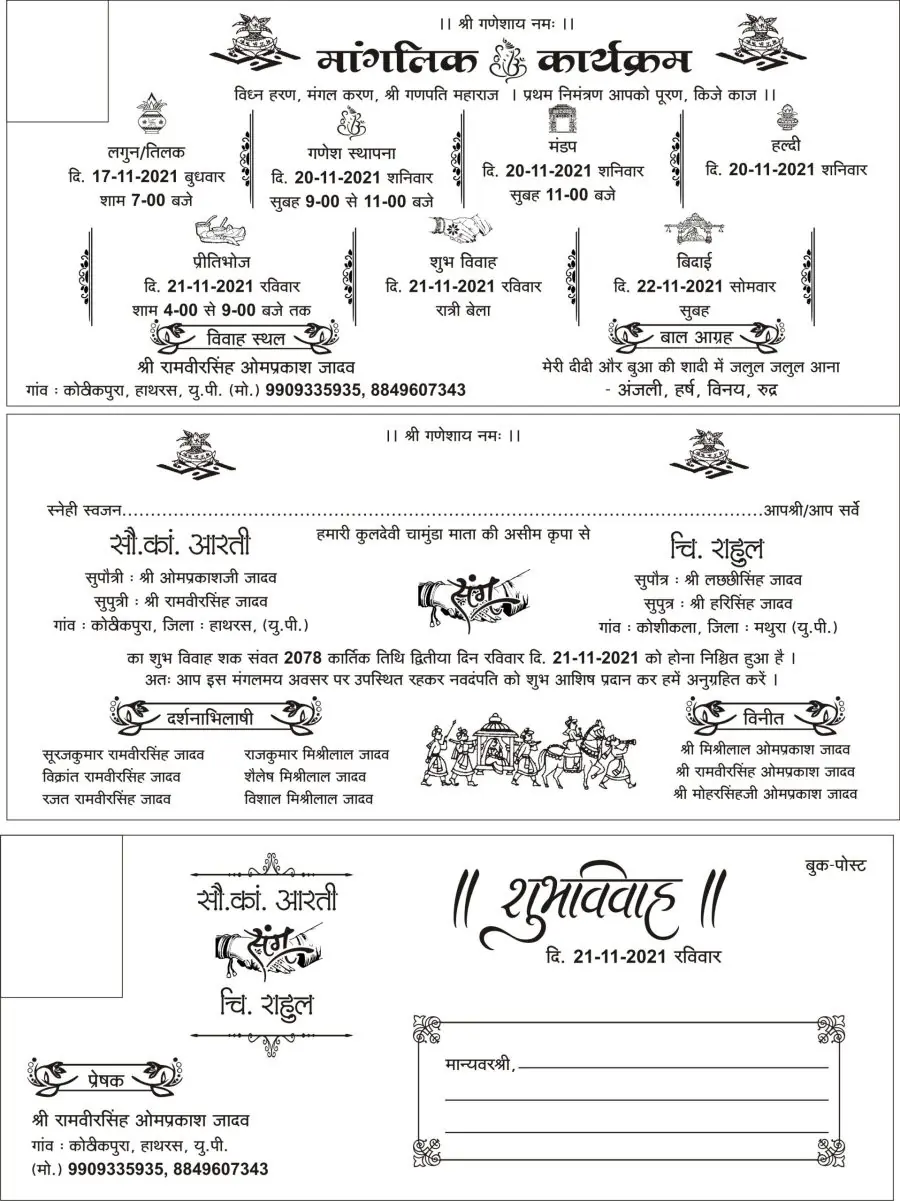 ।। श्री गणेशाय नमः ।।
मांगलिक कार्यक्रम
विध्न हरण, मंगल करण, श्री गणपति महाराज । प्रथम निमंत्रण आपको पूरण, किजे काज ।।
लगुन/तिलक
दि. 17-11-2021 बुधवार
शाम 7-00 बजे
गणेश स्थापना
दि. 20-11-2021 शनिवार
सुबह 9-00 से 11-00 बजे
मंडप
दि. 20-11-2021 शनिवार
सुबह 11-00 बजे
हल्दी
दि. 20-11-2021 शनिवार
प्रीतिभोज
दि. 21-11-2021 रविवार
शाम 4-00 से 9-00 बजे तक
शुभ विवाह
दि. 21-11-2021 रविवार
रात्री बेला
बिदाई
दि. 22-11-2021 सोमवार
सुबह
विवाह स्थल
श्री रामवीरसिंह ओमप्रकाश जादव
गांव : कोठीकपुरा, हाथरस, यु.पी. (मो.) 9909335935, 8849607343
बाल आग्रह
मेरी दीदी और बुआ की शादी में जलुल जलुल आना
- अंजली, हर्ष, विनय, रुद्र
।। श्री गणेशाय नमः ।।
स्नेही स्वजन.......................................................................................आपश्री/आप सर्वे
हमारी कुलदेवी चामुंडा माता की असीम कृपा से
सौ.कां. आरती
सुपौत्री : श्री ओमप्रकाशजी जादव
सुपुत्री : श्री रामवीरसिंह जादव
गांव : कोठीकपुरा, जिला : हाथरस, (यु.पी.)
संग
चि. राहुल
सुपौत्र : श्री लछछीसिंह जादव
सुपुत्र : श्री हरिसिंह जादव
गांव : कोशीकला, जिला : मथुरा (यु.पी.)
का शुभ विवाह शक संवत 2078 कार्तिक तिथि द्वितीया दिन रविवार दि. 21-11-2021 को होना निश्चित हुआ है ।
अतः आप इस मंगलमय अवसर पर उपस्थित रहकर नवदंपति को शुभ आशिष प्रदान कर हमें अनुग्रहित करें ।
दर्शनाभिलाषी
सूरजकुमार रामवीरसिंह जादव
विक्रांत रामवीरसिंह जादव
रजत रामवीरसिंह जादव
राजकुमार मिश्रीलाल जादव
शैलेष मिश्रीलाल जादव
विशाल मिश्रीलाल जादव
विनीत
श्री मिश्रीलाल ओमप्रकाश जादव
श्री रामवीरसिंह ओमप्रकाश जादव
श्री मोहरसिंहजी ओमप्रकाश जादव
सौ.कां. आरती
संग
चि. राहुल
प्रेषक
श्री रामवीरसिंह ओमप्रकाश जादव
गांव : कोठीकपुरा, हाथरस, यु.पी.
(मो.) 9909335935, 8849607343
बुक-पोस्ट
।। शुभविवाह ।।
दि. 21-11-2021 रविवार
मान्यवरश्री,